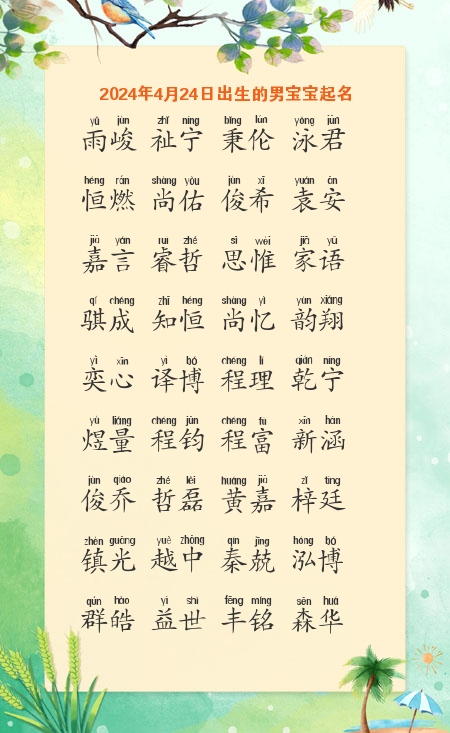 2024年4月24日出生的男宝宝起名
yǔ jùn zhǐ níng bǐng lún yǒng jūn
雨峻 祉宁 秉伦 泳君
héng rán shàng yòu jùn xī yuán ān
恒燃 尚佑 俊希 袁安
jiā yán ruì zhé sī wéi jiā yǔ
嘉言 睿哲 思惟 家语
qí chéng zhī héng shàng yì yùn xiáng
骐成 知恒 尚忆 韵翔
yì xīn yì bó chéng lǐ qián níng
奕心 译博 程理 乾宁
yù liàng chéng jūn chéng fù xīn hán
煜量 程钧 程富 新涵
jùn qiáo zhé lěi huáng jiā zǐ tíng
俊乔 哲磊 黄嘉 梓廷
zhèn guāng yuè zhōng qín jīng hóng bó
镇光 越中 秦兢 泓博
qún hào yì shì fēng míng sēn huá
群皓 益世 丰铭 森华